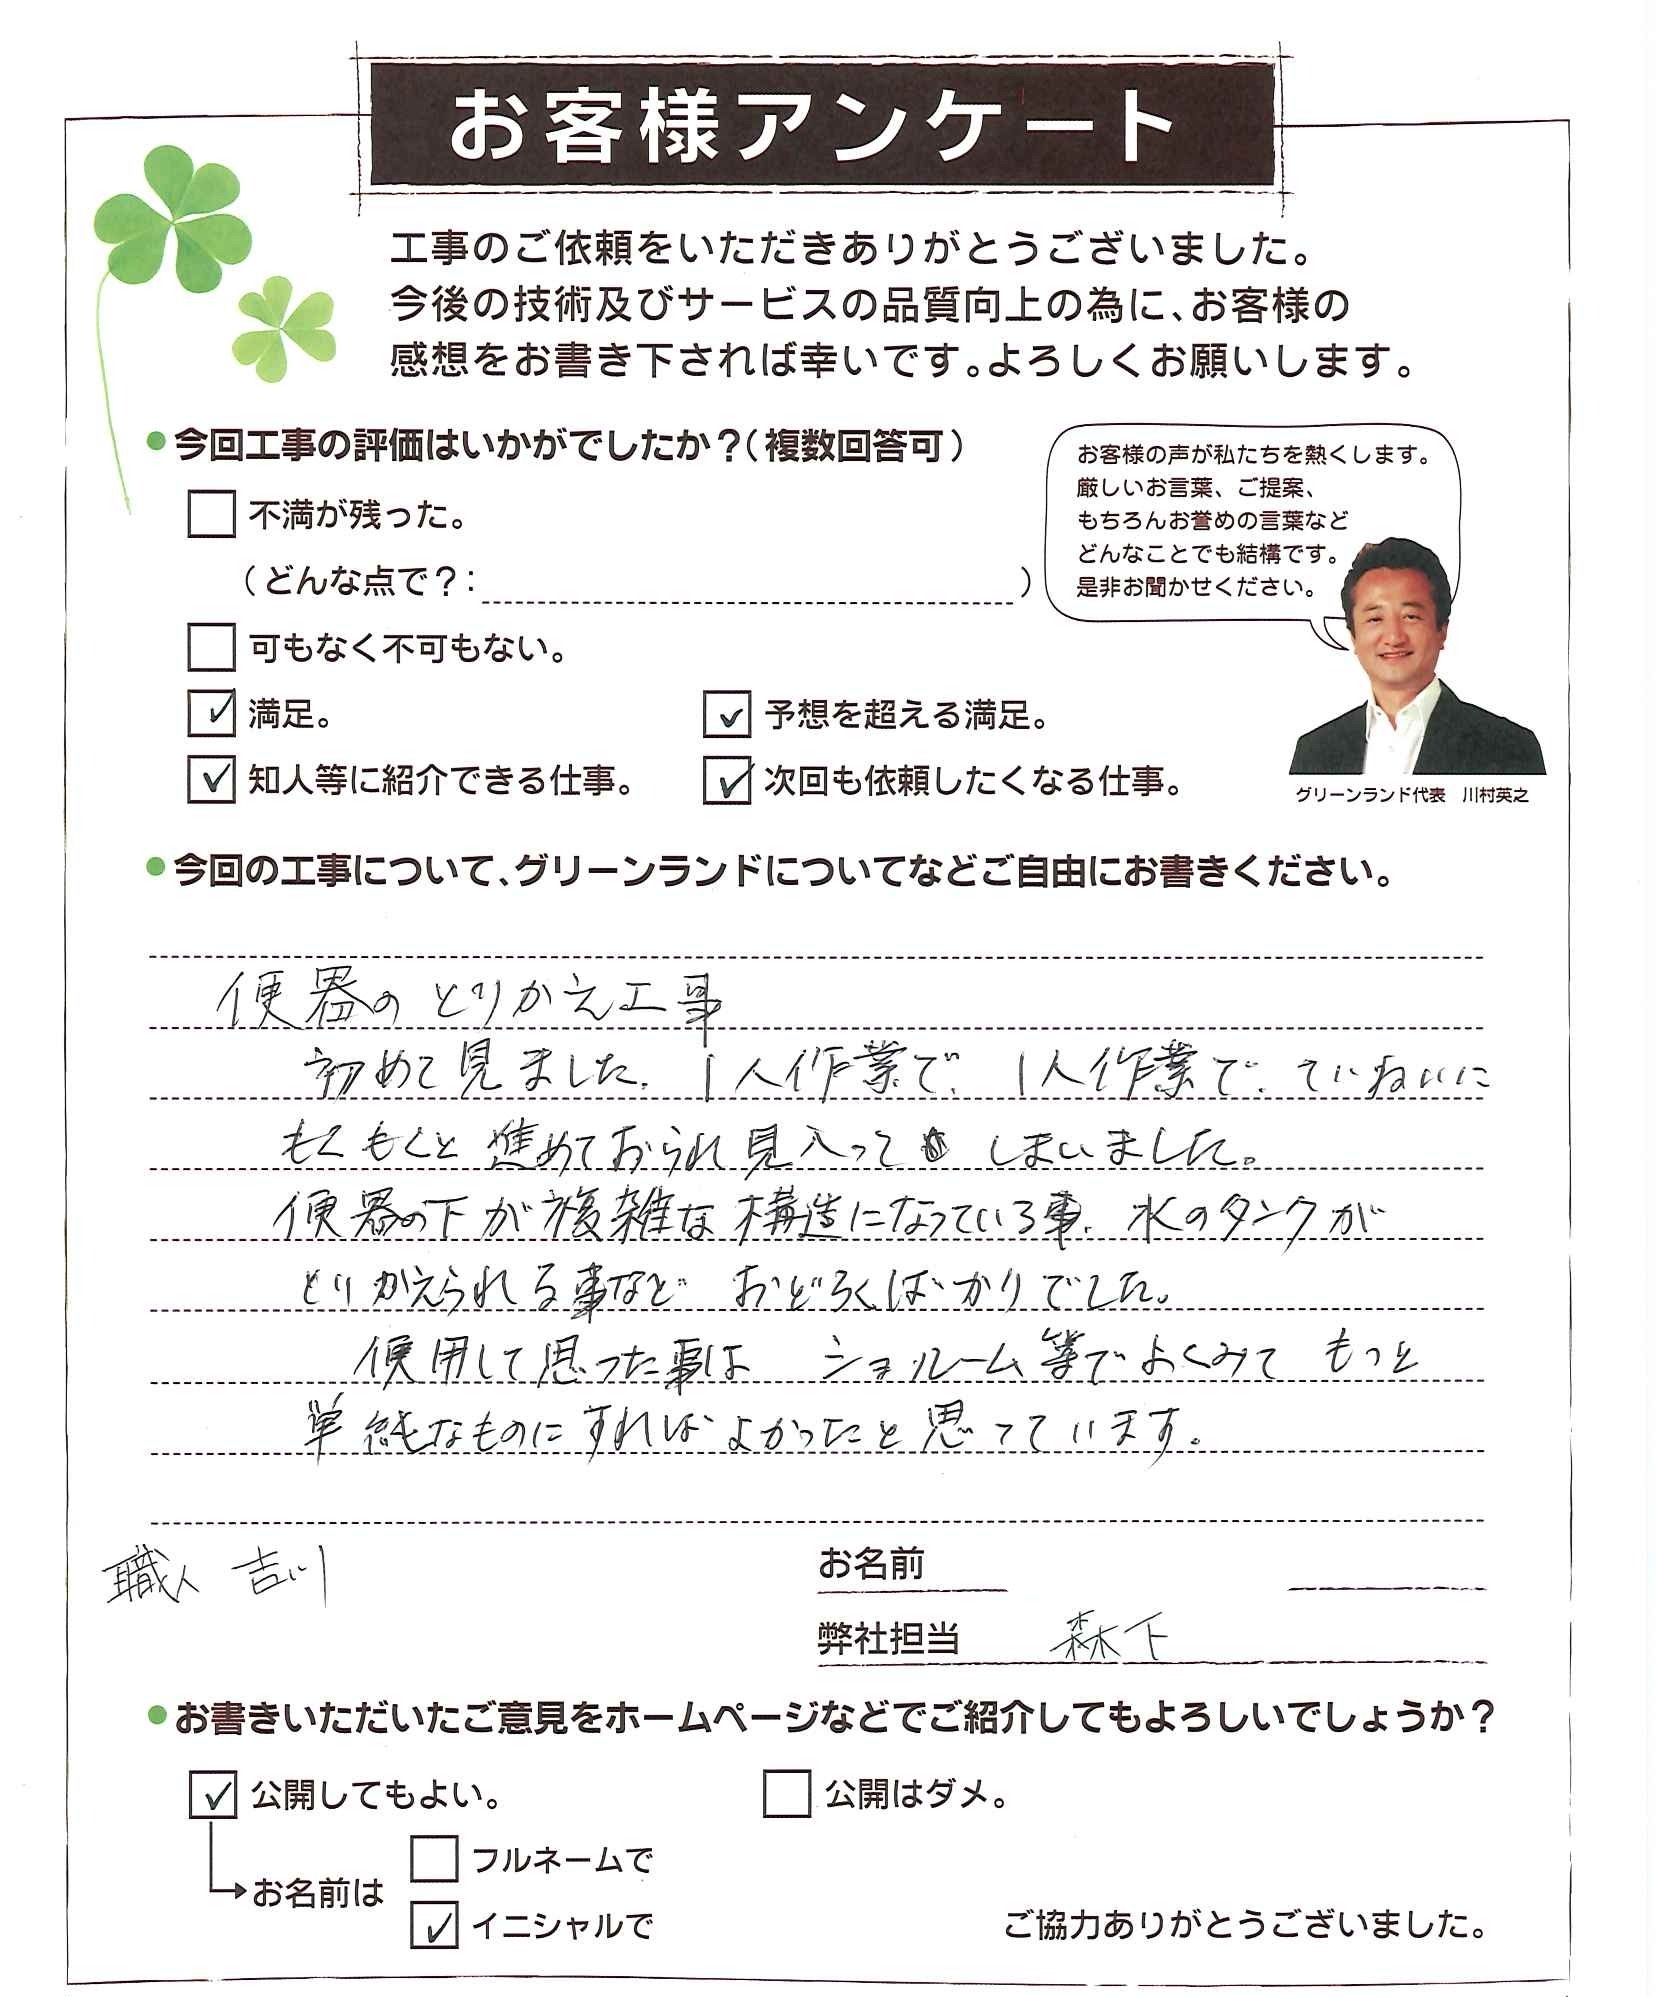 お客様アンケート
工事のご依頼をいただきありがとうございました。
今後の技術及びサービスの品質向上の為に、お客様の
感想をお書き下されば幸いです。よろしくお願いします。
●今回工事の評価はいかがでしたか？（複数回答可）
不満が残った。
（どんな点で？：　　　）
可もなく不可もない。
満足。
予想を超える満足。
知人等に紹介できる仕事。
次回も依頼したくなる仕事。
お客様の声が私たちを熱くします。
厳しいお言葉、ご提案、
もちろんお誉めの言葉など
どんなことでも結構です。
是非お聞かせください。
グリーンランド代表　川村英之
●今回の工事について、グリーンランドについてなどご自由にお書きください。
便器のとりかえ工事
初めて見ました。1人作業で、1人作業で、ていねいに
もくもくと進めておられ見入って しまいました。
便器の下が複雑な構造になっている事、水のタンクが
とりかえられる事など おどろくばかりでした。
使用して思った事は ショールーム等でよくみて もっと
単純なものにすればよかったと思っています。
職人 吉川
お名前
弊社担当 森下
●お書きいただいたご意見をホームページなどでご紹介してもよろしいでしょうか？
公開してもよい。
公開はダメ。
お名前は
フルネームで
イニシャルで
ご協力ありがとうございました。